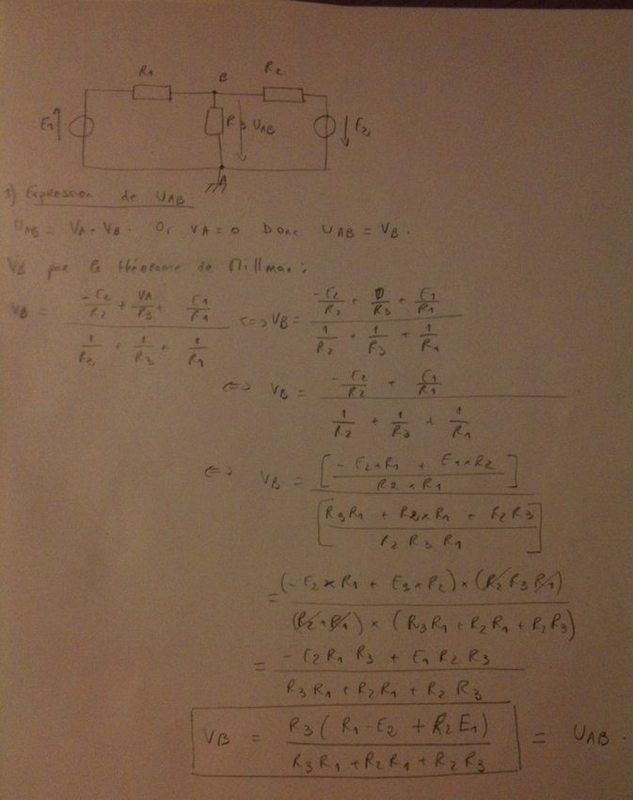 R1 B R2
E1 R3 UAB E2
A
1) Expression de UAB
UAB = VA - VB. Or VA = 0 Donc UAB = VB.
VB par le théorème de Millman :
VB = (-E2/R2 + VA/R3 + E1/R1) / (1/R2 + 1/R3 + 1/R1) <=> VB = (-E2/R2 + 0/R3 + E1/R1) / (1/R2 + 1/R3 + 1/R1)
<=> VB = (-E2/R2 + E1/R1) / (1/R2 + 1/R3 + 1/R1)
<=> VB = [(-E2×R1 + E1×R2) / (R2×R1)] / [(R3R1 + R2×R1 + R2R3) / (R2R3R1)]
= (-E2×R1 + E1×R2)×(R2R3R1) / (R2×R1)×(R3R1+R2R1+R2R3)
= (-E2R1R3 + E1R2R3) / (R3R1+R2R1+R2R3)
VB = R3(R1-E2 + R2E1) / (R3R1+R2R1+R2R3) = UAB.